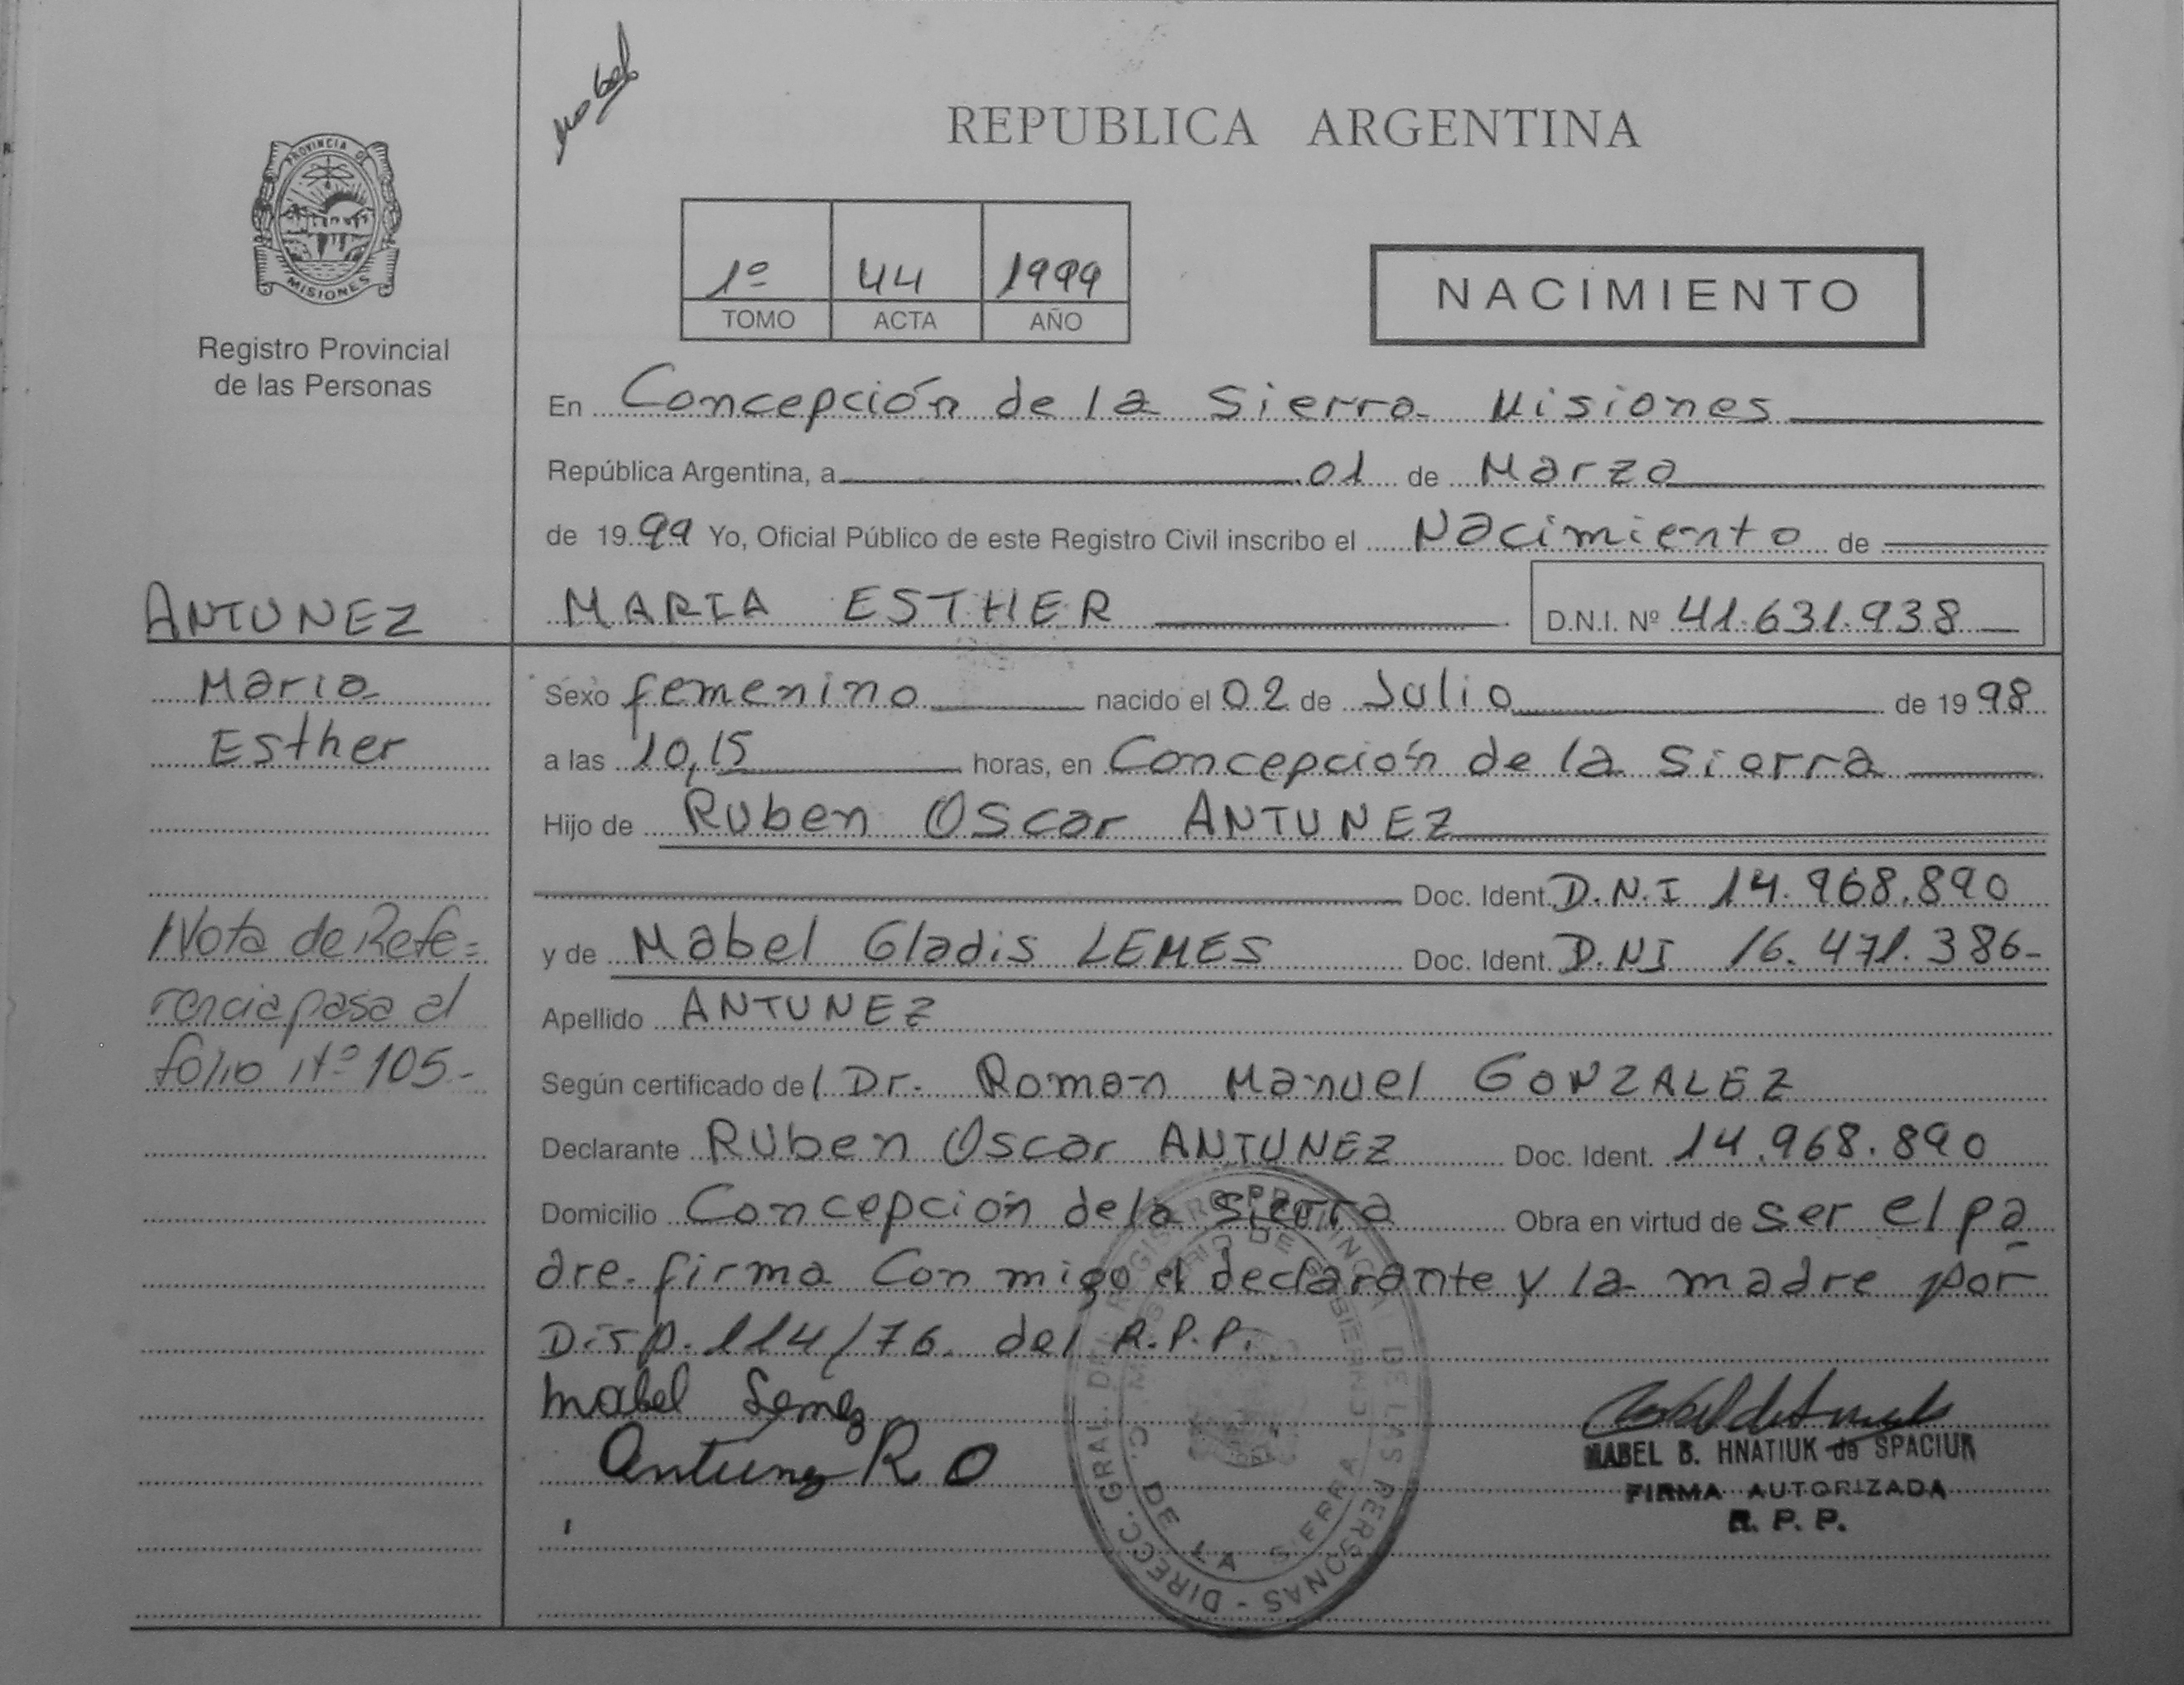 Mabel
REPUBLICA ARGENTINA
PROVINCIA DE
MISIONES
Registro Provincial
de las Personas
1º 44 1999
TOMO ACTA AÑO
NACIMIENTO
En Concepción de la Sierra Misiones
República Argentina, a 01 de Marzo
de 1999 Yo, Oficial Público de este Registro Civil inscribo el Nacimiento de
ANTUNEZ
MARIA ESTHER
D.N.I. Nº 41.631.938
Maria
Esther
Nota de Refe=
rencia pasa al
folio Nº 105-
Sexo femenino nacido el 02 de Julio de 1998
a las 10,15 horas, en Concepción de la Sierra
Hijo de Ruben Oscar ANTUNEZ
Doc. Ident. D.N.I 14.968.890
y de Mabel Gladis LEMES Doc. Ident. D.NI 16.471.386-
Apellido ANTUNEZ
Según certificado del Dr. Roman Manuel GONZALEZ
Declarante Ruben Oscar ANTUNEZ Doc. Ident. 14.968.890
Domicilio Concepción de la Sierra Obra en virtud de ser el pa
dre. firma Conmigo el declarante y la madre por
Disp. 114/76. del R.P.P.
Mabel Lemez
Antunez R O
MABEL B. HNATIUK de SPACIUK
FIRMA AUTORIZADA
R. P. P.
DIRECC. GRAL. DEL REGISTRO PROVINCIAL DE LAS PERSONAS -
MINISTERIO DE GOBIERNO
C. DE LA SIERRA